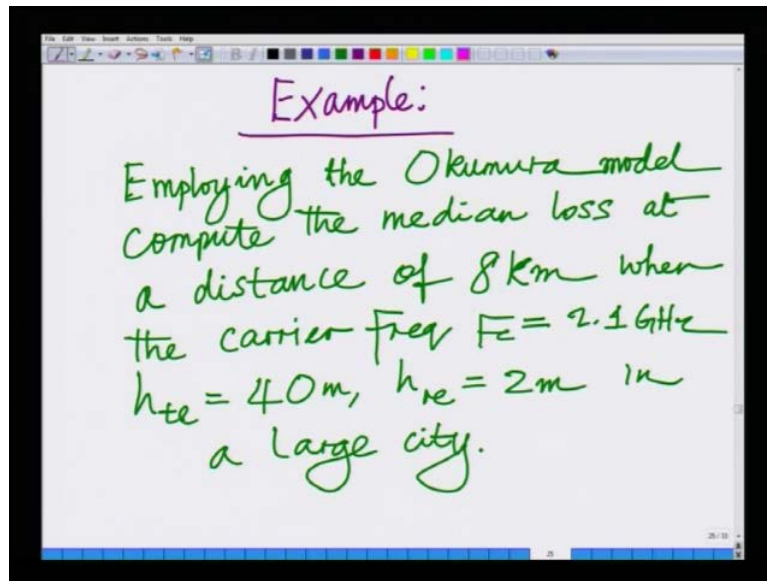 File Edit View Insert Actions Tools Help
Example:
Employing the Okumura model
compute the median loss at
a distance of 8km when
the carrier freq Fc = 2.1 GHz
hte = 40m, hre = 2m in
a large city.
25